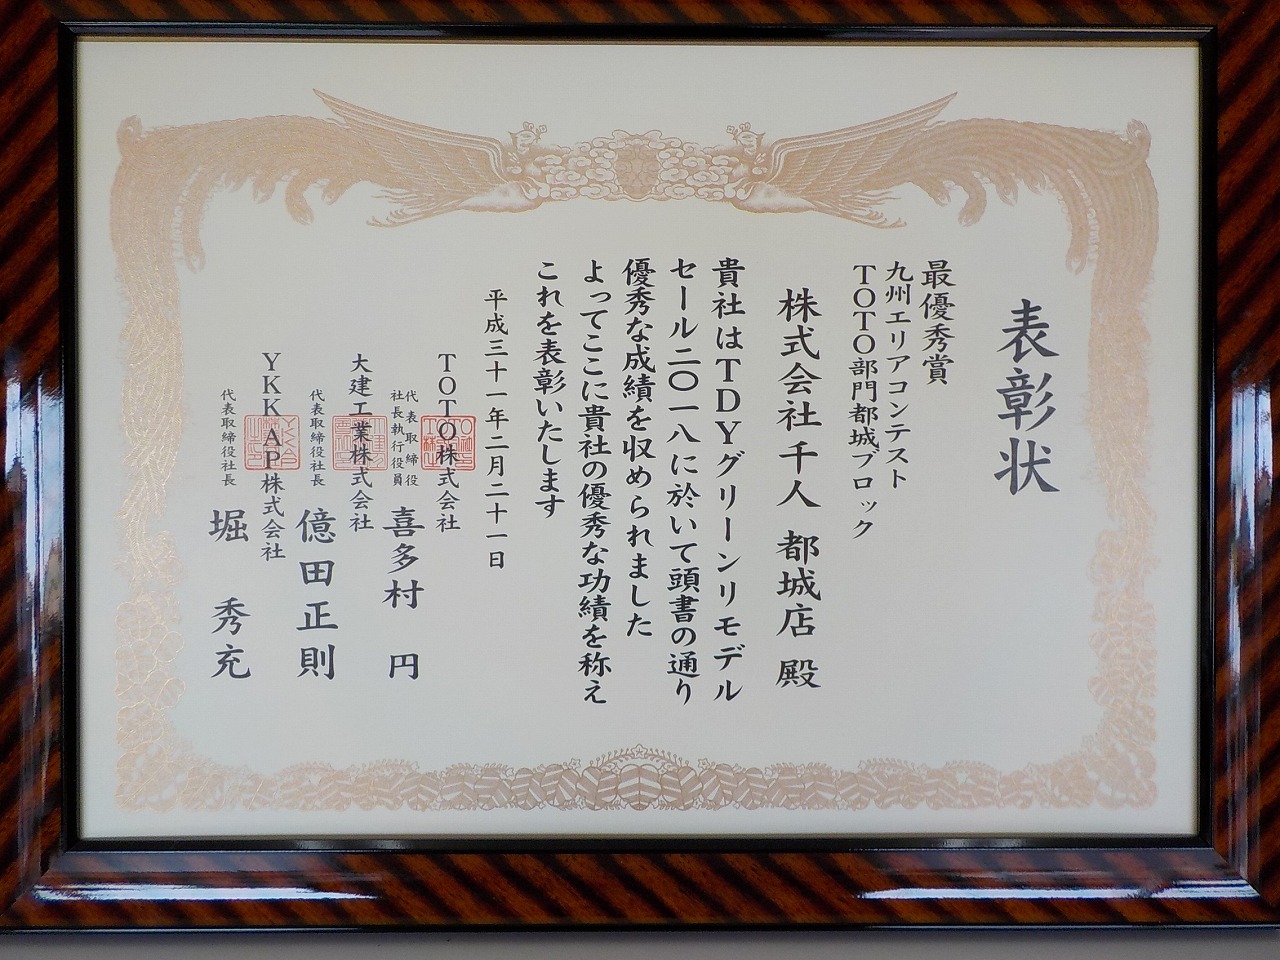 表彰状
最優秀賞
九州エリアコンテスト
TOTO部門都城ブロック
株式会社千人 都城店 殿
貴社はTDYグリーンリモデル
セール二〇一八に於いて頭書の通り
優秀な成績を収められました
よってここに貴社の優秀な功績を称え
これを表彰いたします
平成三十一年二月二十一日
TOTO株式会社
代表取締役
社長執行役員
喜多村 円
大建工業株式会社
代表取締役社長
億田正則
YKK AP株式会社
代表取締役社長
堀 秀充